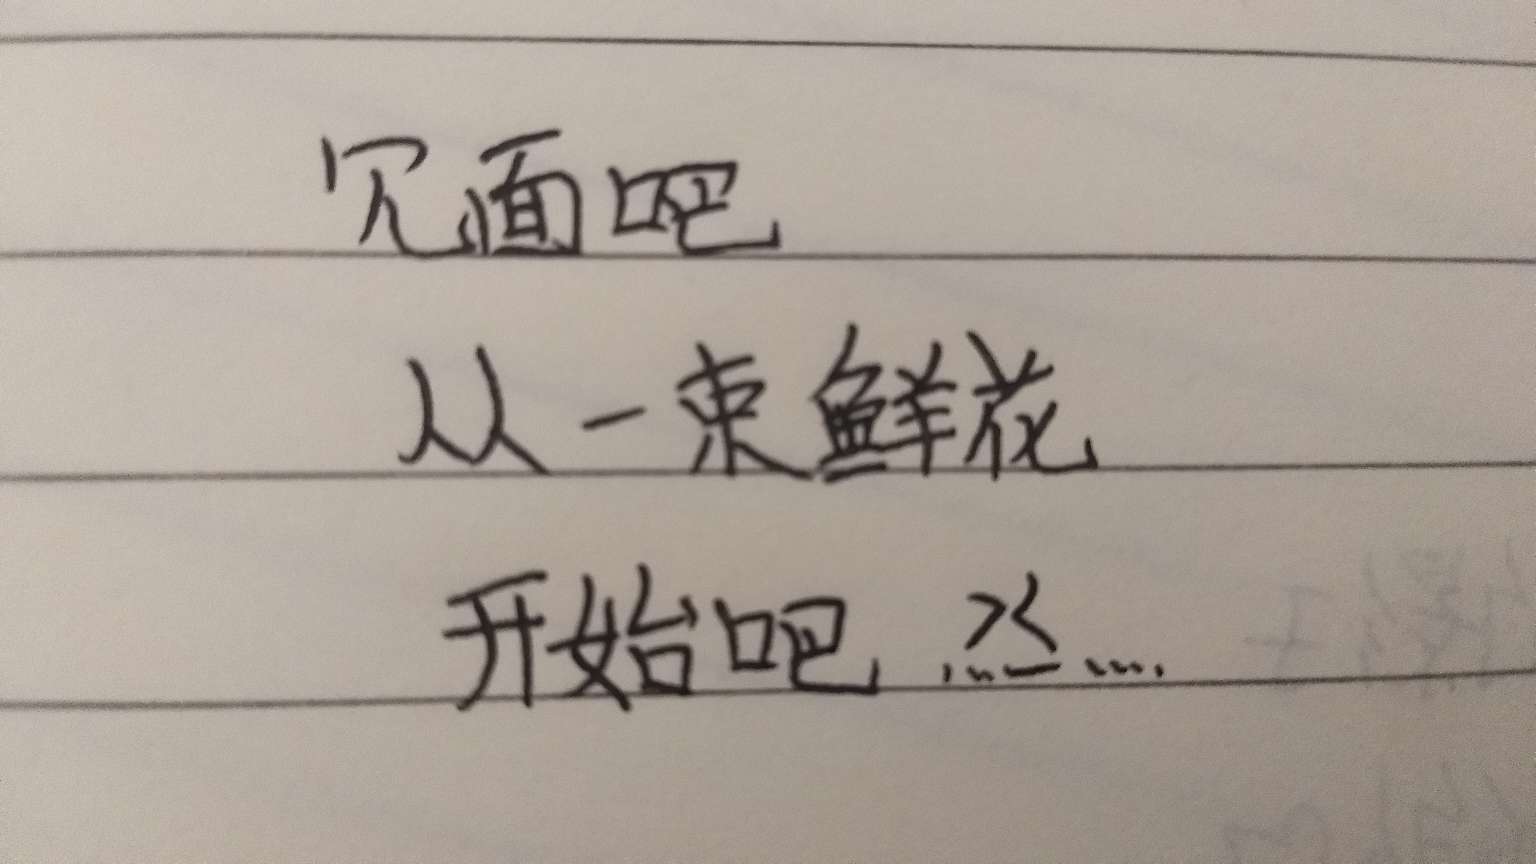 冗面吧
从一束鲜花
开始吧 >< ......